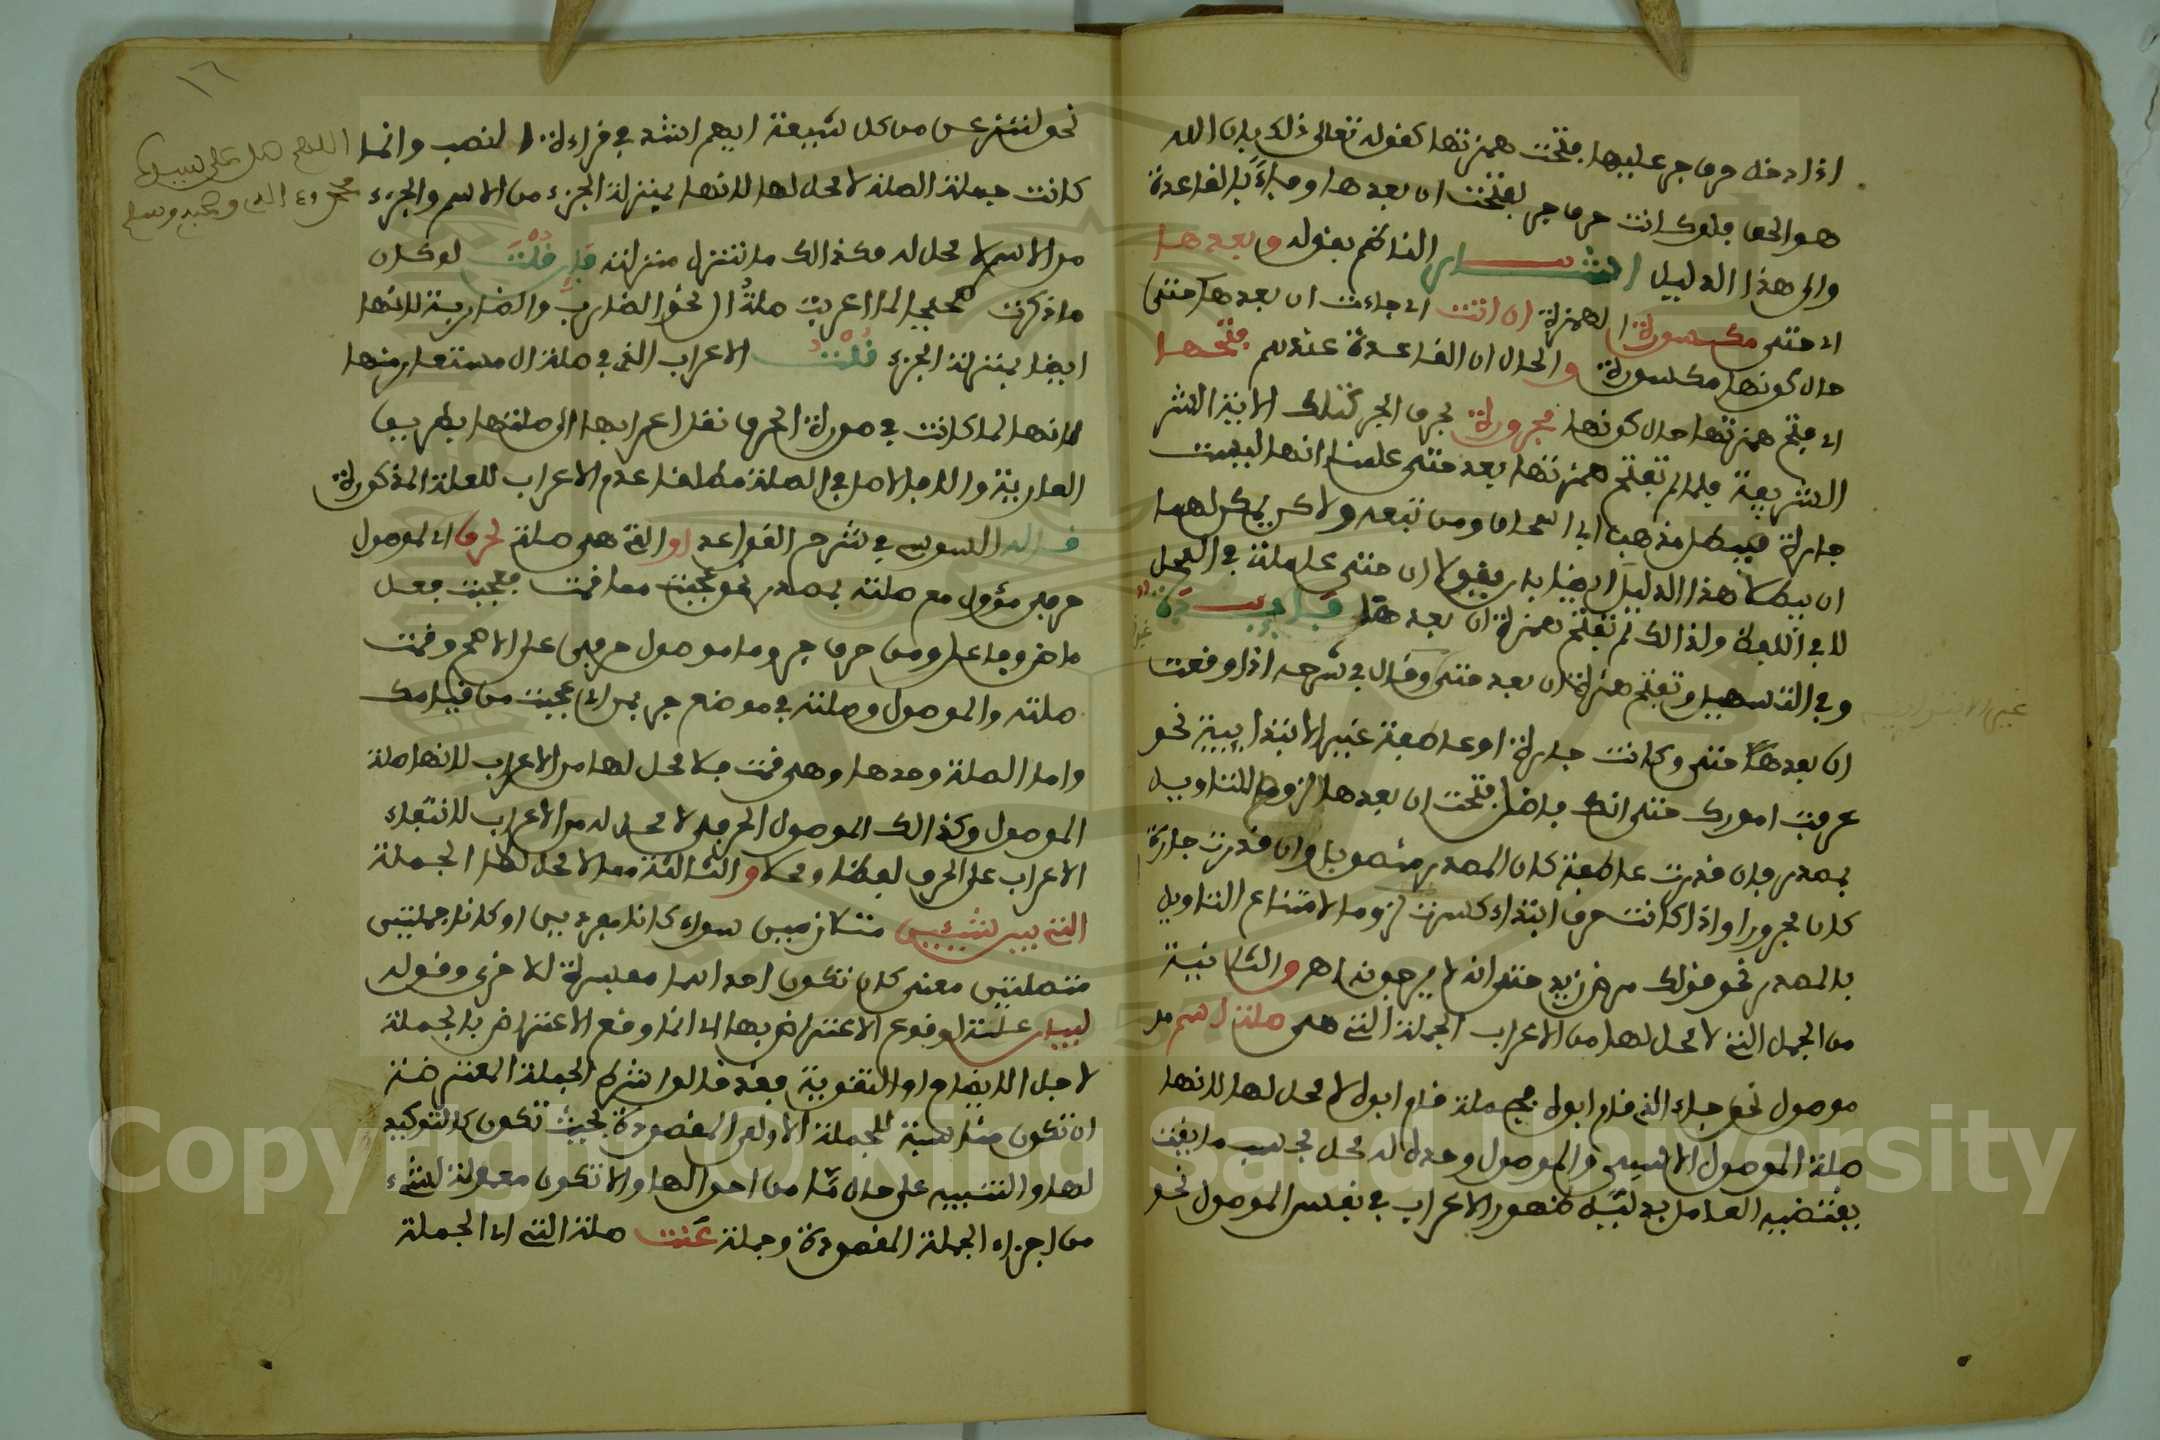 اذا دخل حرف جر عليها فتحت همزتها كقوله تعالى ذلك بان الله
هو الحق فلو كانت حرف جر لفتحت ان بعدها وفاءً بالقاعدة
والى هذا الدليل اشار الناظم بقوله وبعدها
اي حتى مكسورة الهمزة ان اتت اي جاءت ان بعدها حتى
حال كونها مكسورة والحال ان القاعدة عندهم فتحها
اي فتح همزتها حال كونها مجرورة بحرف الجر كتلك الاية الشر
الشريفة فلما لم تفتح همزتها بعد حتى علمنا انها ليست
جارة فيبطل مذهب ابي اسحاق ومن تبعه ولاكن يمكن لهما
ان يبطلا هذا الدليل ايضا بان يقولا ان حتى عاملة في المحل
لا في اللفظ ولذالك لم تفتح همزة ان بعدها فايدة
وفي التسهيل وتفتح همزة ان بعد حتى وقال في شرحه اذا وقعت
ان بعد حتى وكانت جارة او عاطفة غير الابتدايية نحو
عرفت امورك حتى انك فاضل فتحت ان بعدها لزوما للتاويل
بمصدر فان قدرت عاطفة كان المصدر منصوبا وان قدرت جارة
كان مجرورا واذا كانت حرف ابتداء كسرت لزوما لامتناع التاويل
بالمصدر نحو قولك مرض زيد حتى انه لا يرجونه اهـ والثانية
من الجمل التي لا محل لها من الاعراب الجملة التي هي صلة لاسم
موصول نحو جاء الذي قام ابوه فجملة قام ابوه لا محل لها لانها
صلة الموصول الاسمي والموصول وحده له محل بحسب ما
يقتضيه العامل بدليل ظهور الاعراب في نفس الموصول نحو
١٦
اللهم صل على سيدنا
محمد وءاله وصحبه وسلم
نحو لننزعن من كل شيعة ايهم اشد في قراءة النصب وانما
كانت جملة الصلة لا محل لها لانها بمنزلة الجزء من الاسم والجزء
من الاسم لا محل له فكذالك ما تنزل منزلته فان قلت لو كان
ما ذكرت صحيحا لما اعربت صلة ال نحو الضارب والضاربة لانها
ايضا بمنزلة الجزء قلت الاعراب الذي في صلة ال مستعار منها
لانها لما كانت في صورة الحرف نقل اعرابها الى صلتها بطريق
العارية والا فالاصل في الصلة مطلقا عدم الاعراب للعلة المذكورة
قاله السوسي في شرح القواعد او التي هي صلة لحرف اي لموصول
حرفي مؤول مع صلته بمصدر نحو عجبت مما قمت فعجبت فعل
ماض وفاعل ومن حرف جر وما موصول حرفي على الاصح وقمت
صلته والموصول وصلته في موضع جر بمن اي عجبت من قيامك
واما الصلة وحدها وهي قمت فلا محل لها من الاعراب لانها صلة
الموصول وكذالك الموصول الحرفي لا محل له من الاعراب لانتفاء
الاعراب على الحرف لفظا ومحلا والثالثة مما لا محل لها الجملة
التي بين شيئين متلازمين سواء كانا مفردين او كانا جملتين
متصلتين معنى كان تكون احداهما مفسرة للاخرى وقوله
لبيان علة لوقوع الاعتراض بها اي انما وقع الاعتراض بالجملة
لاجل الايضاح او التقوية فقد قالوا شرط الجملة المعترضة
ان تكون مناسبة للجملة الاولى المقصودة بحيث تكون كالتوكيد
لها والتنبيه على حال ما من احوالها والا تكون معمولة لشيء
من اجزاء الجملة المقصودة وجملة عنت صلة التي اي الجملة